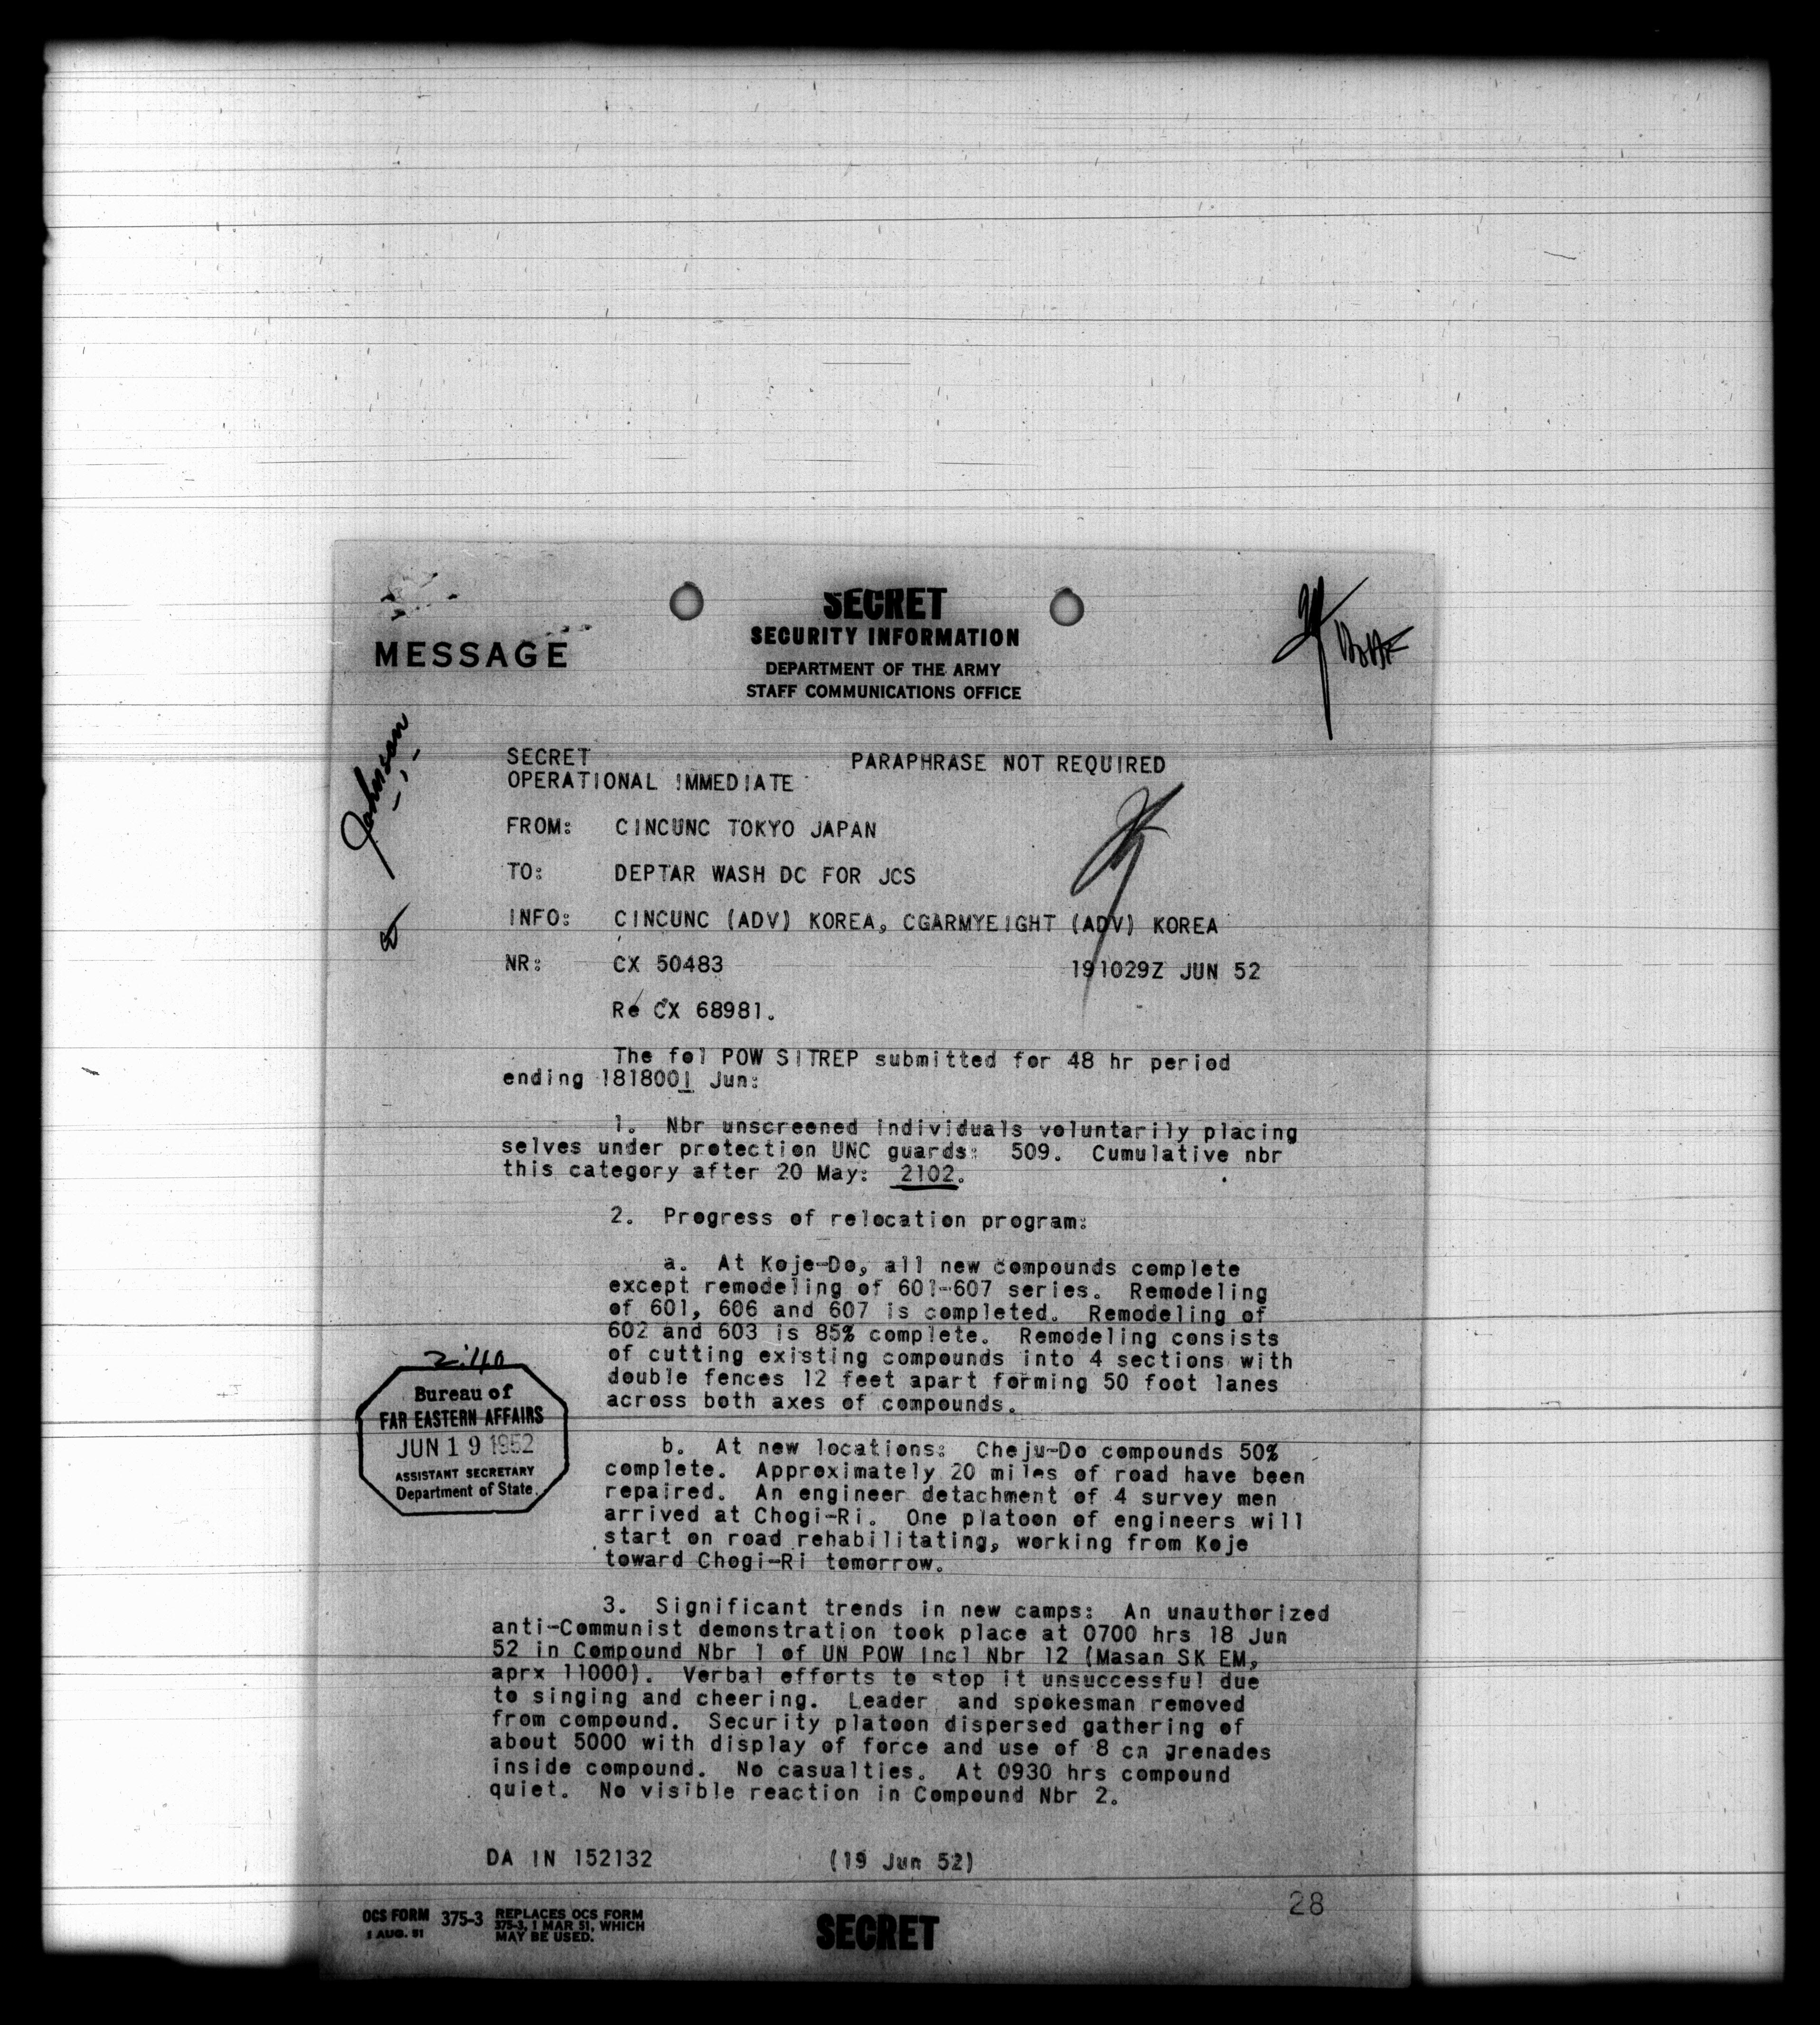 SECRET
SECURITY INFORMATION
MESSAGE
DEPARTMENT OF THE ARMY
STAFF COMMUNICATIONS OFFICE
Johnson
SECRET PARAPHRASE NOT REQUIRED
OPERATIONAL IMMEDIATE
FROM: CINCUNC TOKYO JAPAN
TO: DEPTAR WASH DC FOR JCS
INFO: CINCUNC (ADV) KOREA, CGARMYEIGHT (ADV) KOREA
NR: CX 50483 191029Z JUN 52
Re CX 68981.
The fol POW SITREP submitted for 48 hr period
ending 181800I Jun:
1. Nbr unscreened individuals voluntarily placing
selves under protection UNC guards: 509. Cumulative nbr
this category after 20 May: 2102.
2. Progress of relocation program:
a. At Koje-Do, all new compounds complete
except remodeling of 601-607 series. Remodeling
of 601, 606 and 607 is completed. Remodeling of
602 and 603 is 85% complete. Remodeling consists
of cutting existing compounds into 4 sections with
double fences 12 feet apart forming 50 foot lanes
across both axes of compounds.
2:40
Bureau of
FAR EASTERN AFFAIRS
JUN 19 1952
ASSISTANT SECRETARY
Department of State
b. At new locations: Cheju-Do compounds 50%
complete. Approximately 20 miles of road have been
repaired. An engineer detachment of 4 survey men
arrived at Chogi-Ri. One platoon of engineers will
start on road rehabilitating, working from Koje
toward Chogi-Ri tomorrow.
3. Significant trends in new camps: An unauthorized
anti-Communist demonstration took place at 0700 hrs 18 Jun
52 in Compound Nbr 1 of UN POW Incl Nbr 12 (Masan SK EM,
aprx 11000). Verbal efforts to stop it unsuccessful due
to singing and cheering. Leader and spokesman removed
from compound. Security platoon dispersed gathering of
about 5000 with display of force and use of 8 cn grenades
inside compound. No casualties. At 0930 hrs compound
quiet. No visible reaction in Compound Nbr 2.
DA IN 152132 (19 Jun 52)
28
OCS FORM 375-3 REPLACES OCS FORM
1 AUG. 51 375-3, 1 MAR 51, WHICH
MAY BE USED.
SECRET